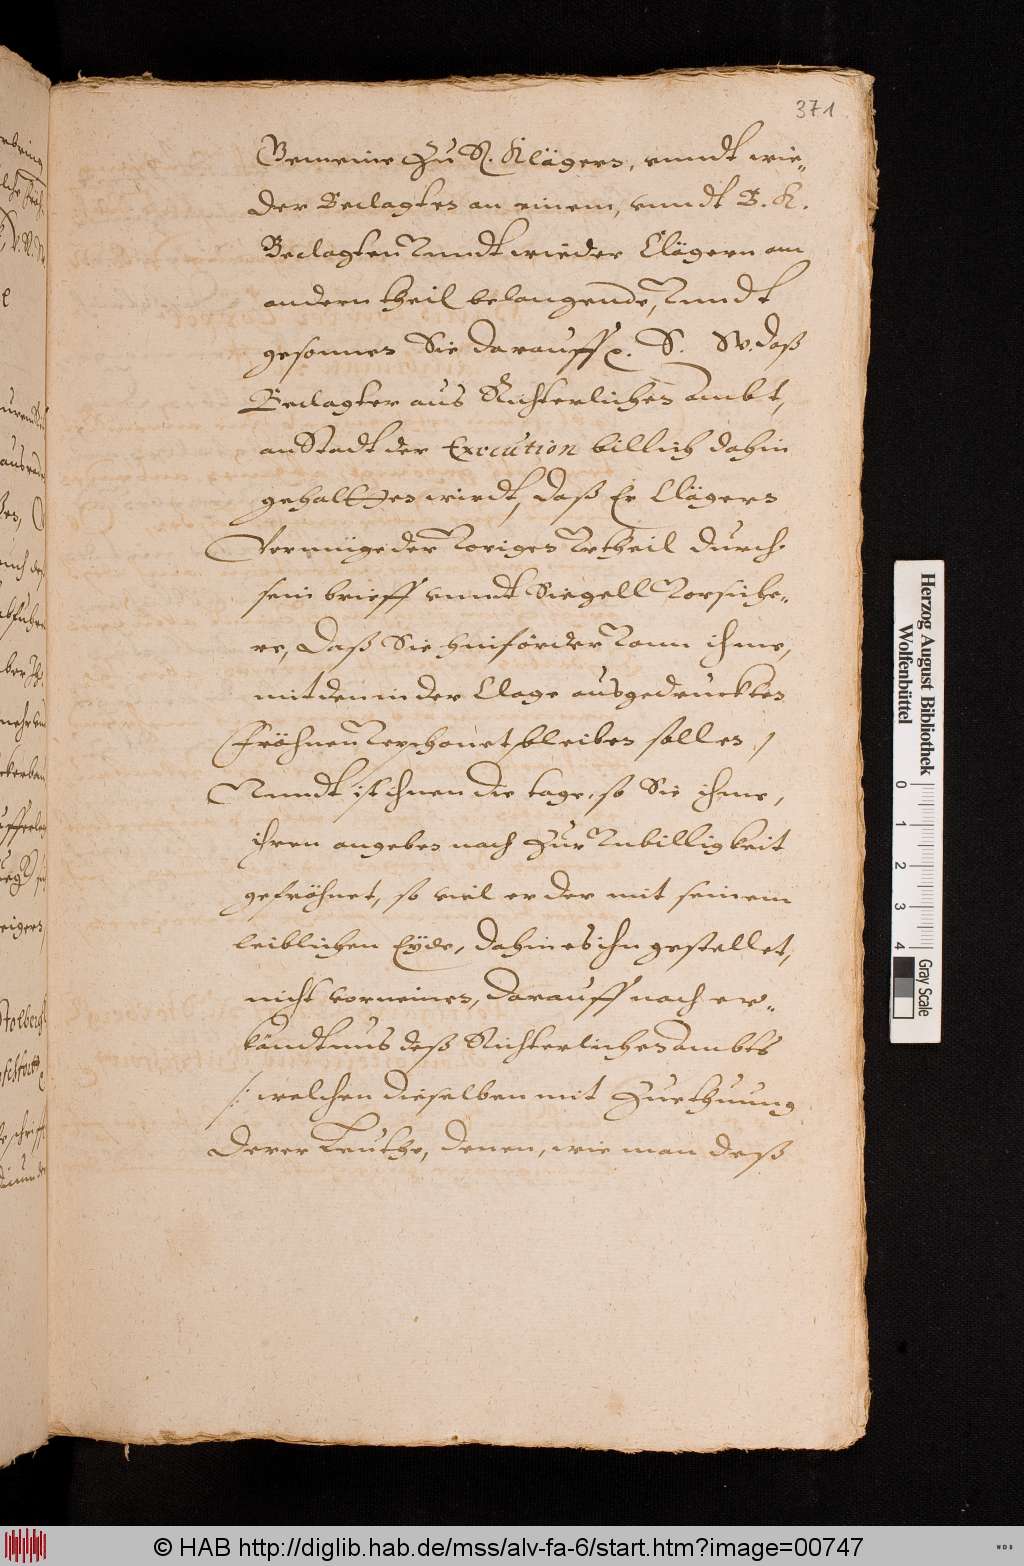 371
Gemeine zu N. Klägern, unndt wie-
der Beclagten an einem, unndt B. K.
Beclagten Vnndt wieder Clägern am
andern theil belangende, Vnndt
gesonnen Sie darauff p. S. W. daß
Beclagter aus Richterlichen ambt,
an Stadt der Execution billich dahin
gehaltten wirdt, daß Er Clägern
Vermüge der Vorigen Vrtheil durch
sein brieff vnndt Siegell Vorsiche-
re, Daß Sie hinförder Vonn ihme,
mit denn in der Clage ausgedruckten
Fröhnen Verschonet bleiben sollen /
Vnndt ist ihnen die tage, so Sie ihme,
ihren angeben nach zur Vnbilligkeit
gefröhnet, so viel er der mit seinem
leiblichen Eyde, dahin es ihn gestellet,
nicht vorneinen, darauff nach er-
kändtnus deß Richterlichen Ambts
/: welchen dieselben mit Zuethuung
Derer Leuthe, denen, wie man deß
Herzog August Bibliothek
Wolfenbüttel
0 1 2 3 4
Gray Scale
© HAB http://diglib.hab.de/mss/alv-fa-6/start.htm?image=00747
WDB